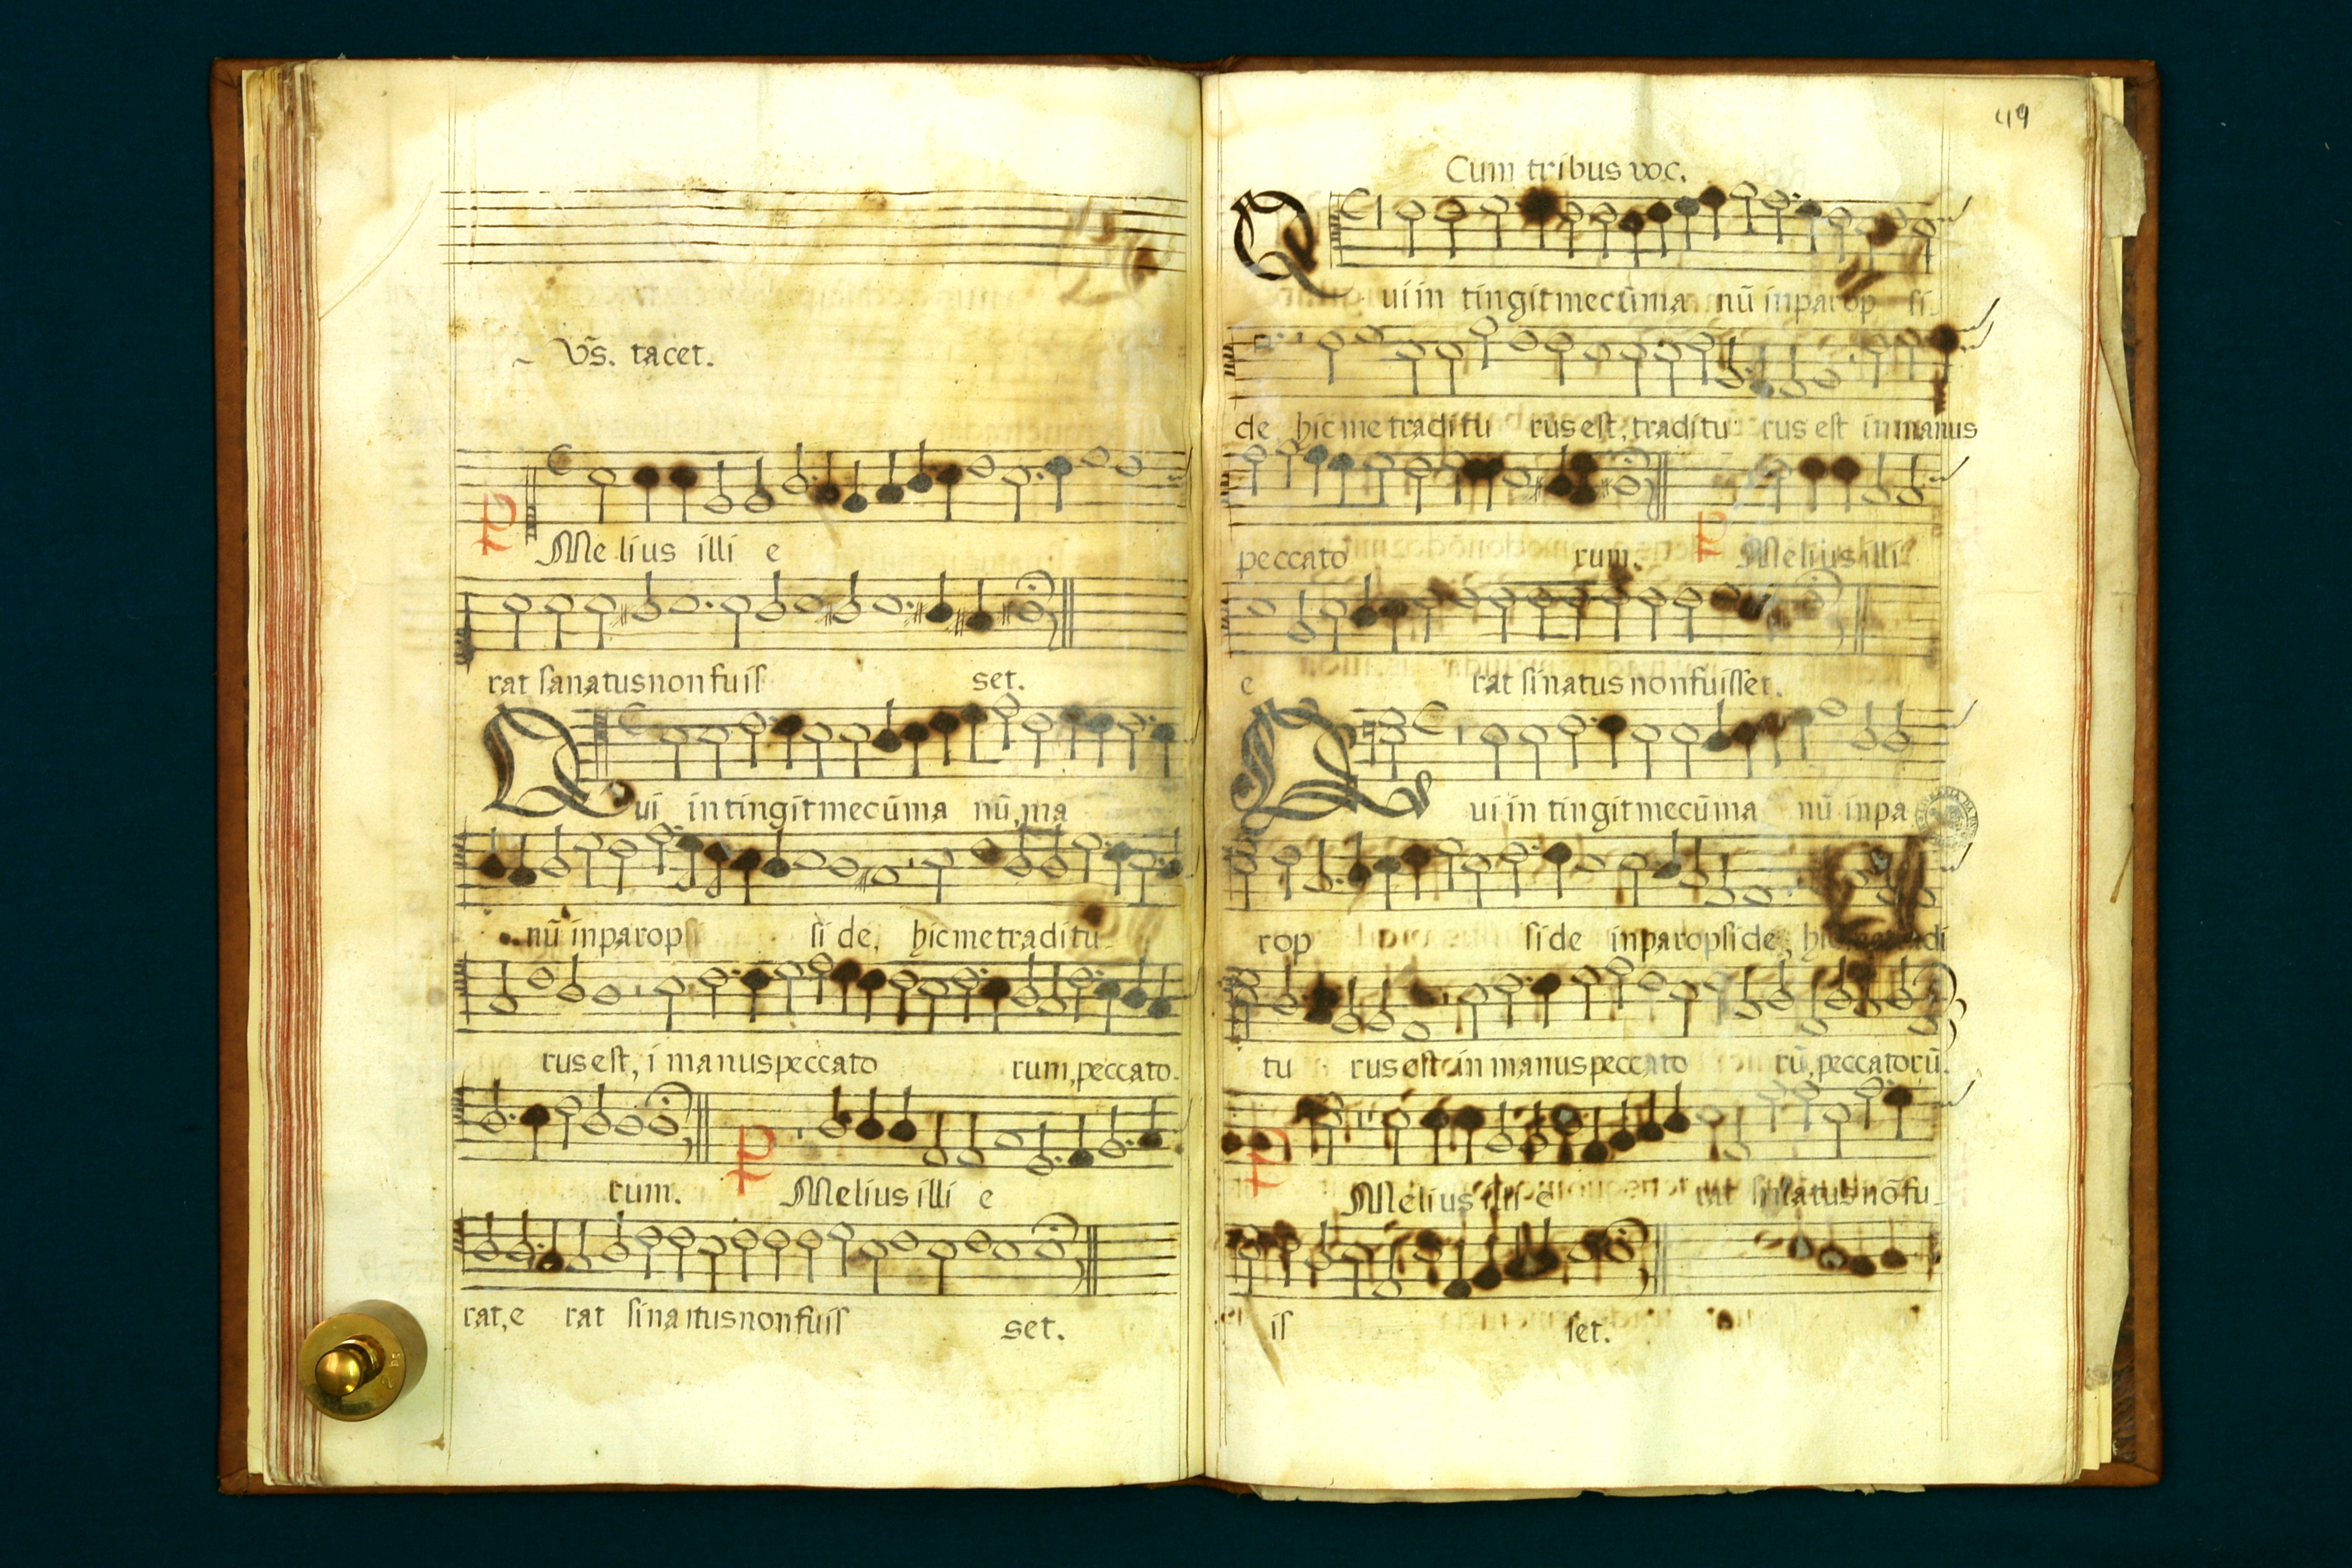 Vs̃. tacet.
P Melius illi e
rat sanatus non fuis set.
Qui in tingit mecũ ma nũ, ma
nũ in parop si de, hic me traditu
rus est, i manus peccato rum, peccato
rum. P Melius illi e
rat, e rat si natus non fuis set.
49
Cum tribus voc.
Qui in tingit mecũ ma nũ in parop si
de hic me traditu rus est, traditu rus est in manus
peccato rum. P Melius illi
e rat si natus non fuisset.
Qui in tingit mecũ ma nũ in pa
rop si de in paropside, hic
tu rus est in manus peccato rũ, peccatorũ.
P Melius illi e rat si natus nõ fu
is set.